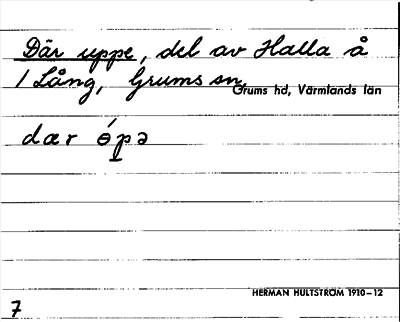 Där uppe, del av Halla å
1 Lång, Grums sn,
Grums hd, Värmlands län
dær ó̱pə
HERMAN HULTSTRÖM 1910–12
7